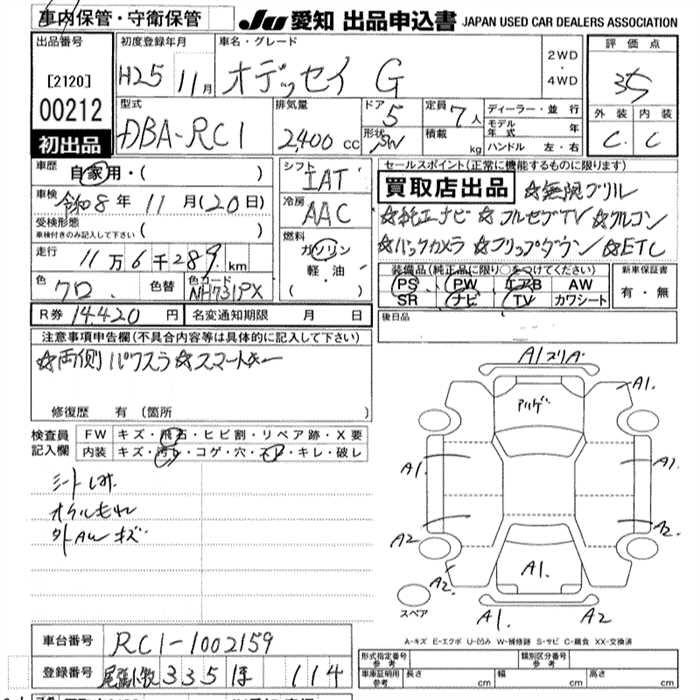 車内保管・守衛保管
JU 愛知 出品申込書 JAPAN USED CAR DEALERS ASSOCIATION
出品番号
[2120]
00212
初出品
初度登録年月 H25 11月
車名・グレード オデッセイ G
2WD・4WD
評価点 3.5
外装 内装
C C
型式 DBA-RC1
排気量 2400 cc
ドア 5
形状 SW
定員 7人
積載 kg
ディーラー・並行
モデル年式 年
ハンドル 左・右
車歴 自家用・( )
車検 令和8年 11月(20日)
受検形態
車検付きのみ記入して下さい ( )
走行 11万6千289 km
色 クロ 色替 色コード NH731PX
シフト IAT
冷房 AAC
燃料 ガソリン 軽油・( )
セールスポイント(正常に機能するものに限ります)
買取店出品 ☆無限グリル
☆純正ナビ ☆フルセグTV ☆クルコン
☆バックカメラ ☆フリップダウン ☆ETC
装備品(純正品に限り○をつけてください)
PS PW エアB AW
SR ナビ TV カワシート
新車保証書
有・無
R券 14,420円 名変通知期限 月 日
後日品
注意事項申告欄(不具合内容等は具体的に記入して下さい)
☆両側パワスラ ☆スマートキー
修復歴 有(箇所 )
検査員記入欄
FW キズ・飛石・ヒビ割・リペア跡・X要
内装 キズ・汚れ・コゲ・穴・スレ・キレ・破レ
シートしみ
オイルもれ
外AWキズ
A1スリA
A1.
アリゲ
A1.
A1
A2
A2
A2.
A1.
A1
A2
スペア
A-キズ E-エクボ U-凹み W-補修跡 S-サビ C-腐食 XX-交換済
車台番号 RC1-1002159
登録番号 尾張小牧 335 ほ 114
形式指定番号 参考
類別区分番号 参考
車庫証明用 参考 長さ cm 幅 cm 高さ cm